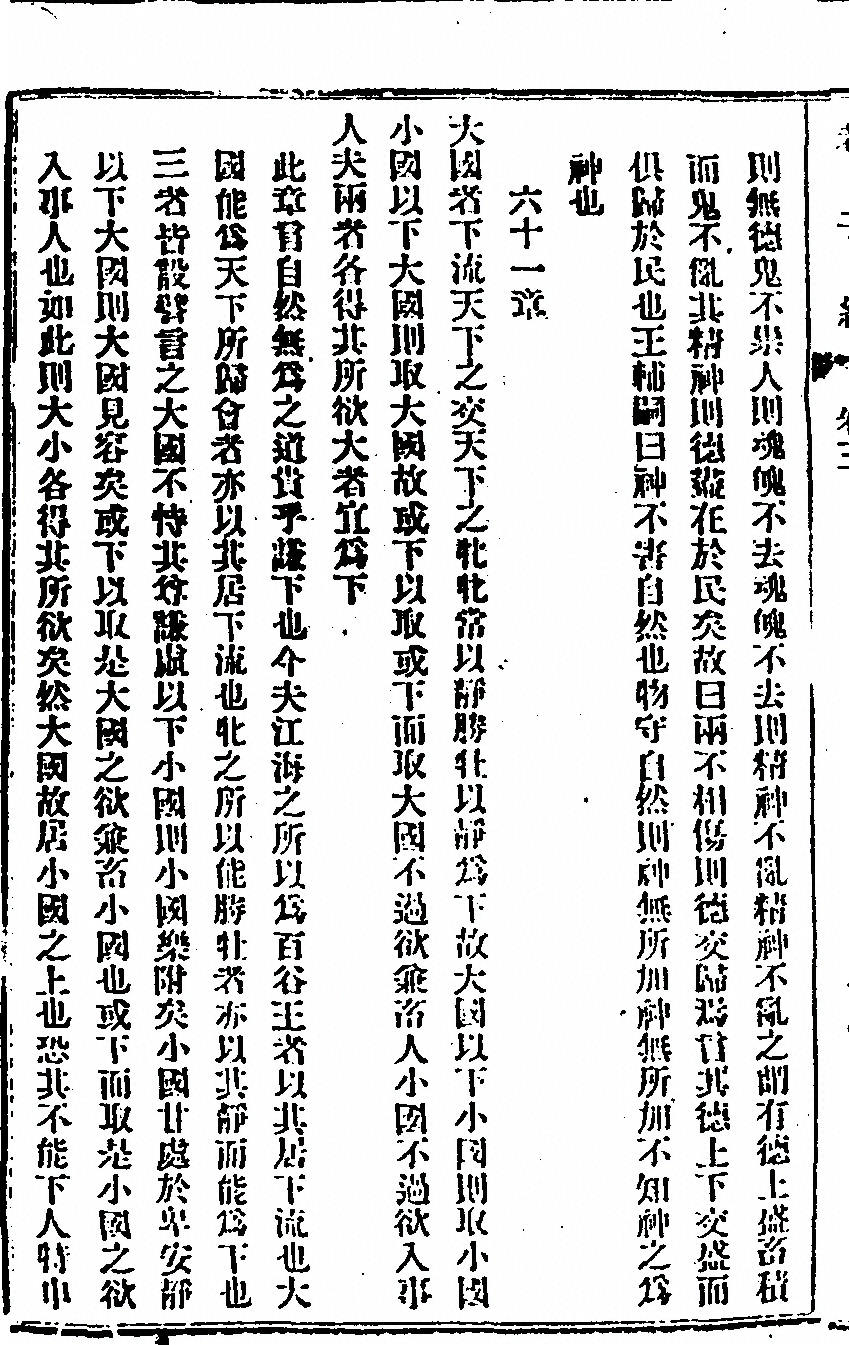 則無德鬼不祟人則魂魄不去魂魄不去則精神不亂精神不亂之謂有德上盛畜積
而鬼不亂其精神則德盡在於民矣故曰兩不相傷則德交歸焉言其德上下交盛而
俱歸於民也王輔嗣曰神不害自然也物守自然則神無所加神無所加不知神之為
神也
六十一章
大國者下流天下之交天下之牝牝常以靜勝牡以靜為下故大國以下小國則取小國
小國以下大國則取大國故或下以取或下而取大國不過欲兼畜人小國不過欲入事
人夫兩者各得其所欲大者宜為下
此章言自然無為之道貴乎謙下也今夫江海之所以為百谷王者以其居下流也大
國能為天下所歸會者亦以其居下流也牝之所以能勝牡者亦以其靜而能為下也
三者皆設譬言之大國不恃其尊謙虛以下小國則小國樂附矣小國甘處於卑安靜
以下大國則大國見容矣或下以取是大國之欲兼畜小國也或下而取是小國之欲
入事人也如此則大小各得其所欲矣然大國故居小國之上也恐其不能下人特申